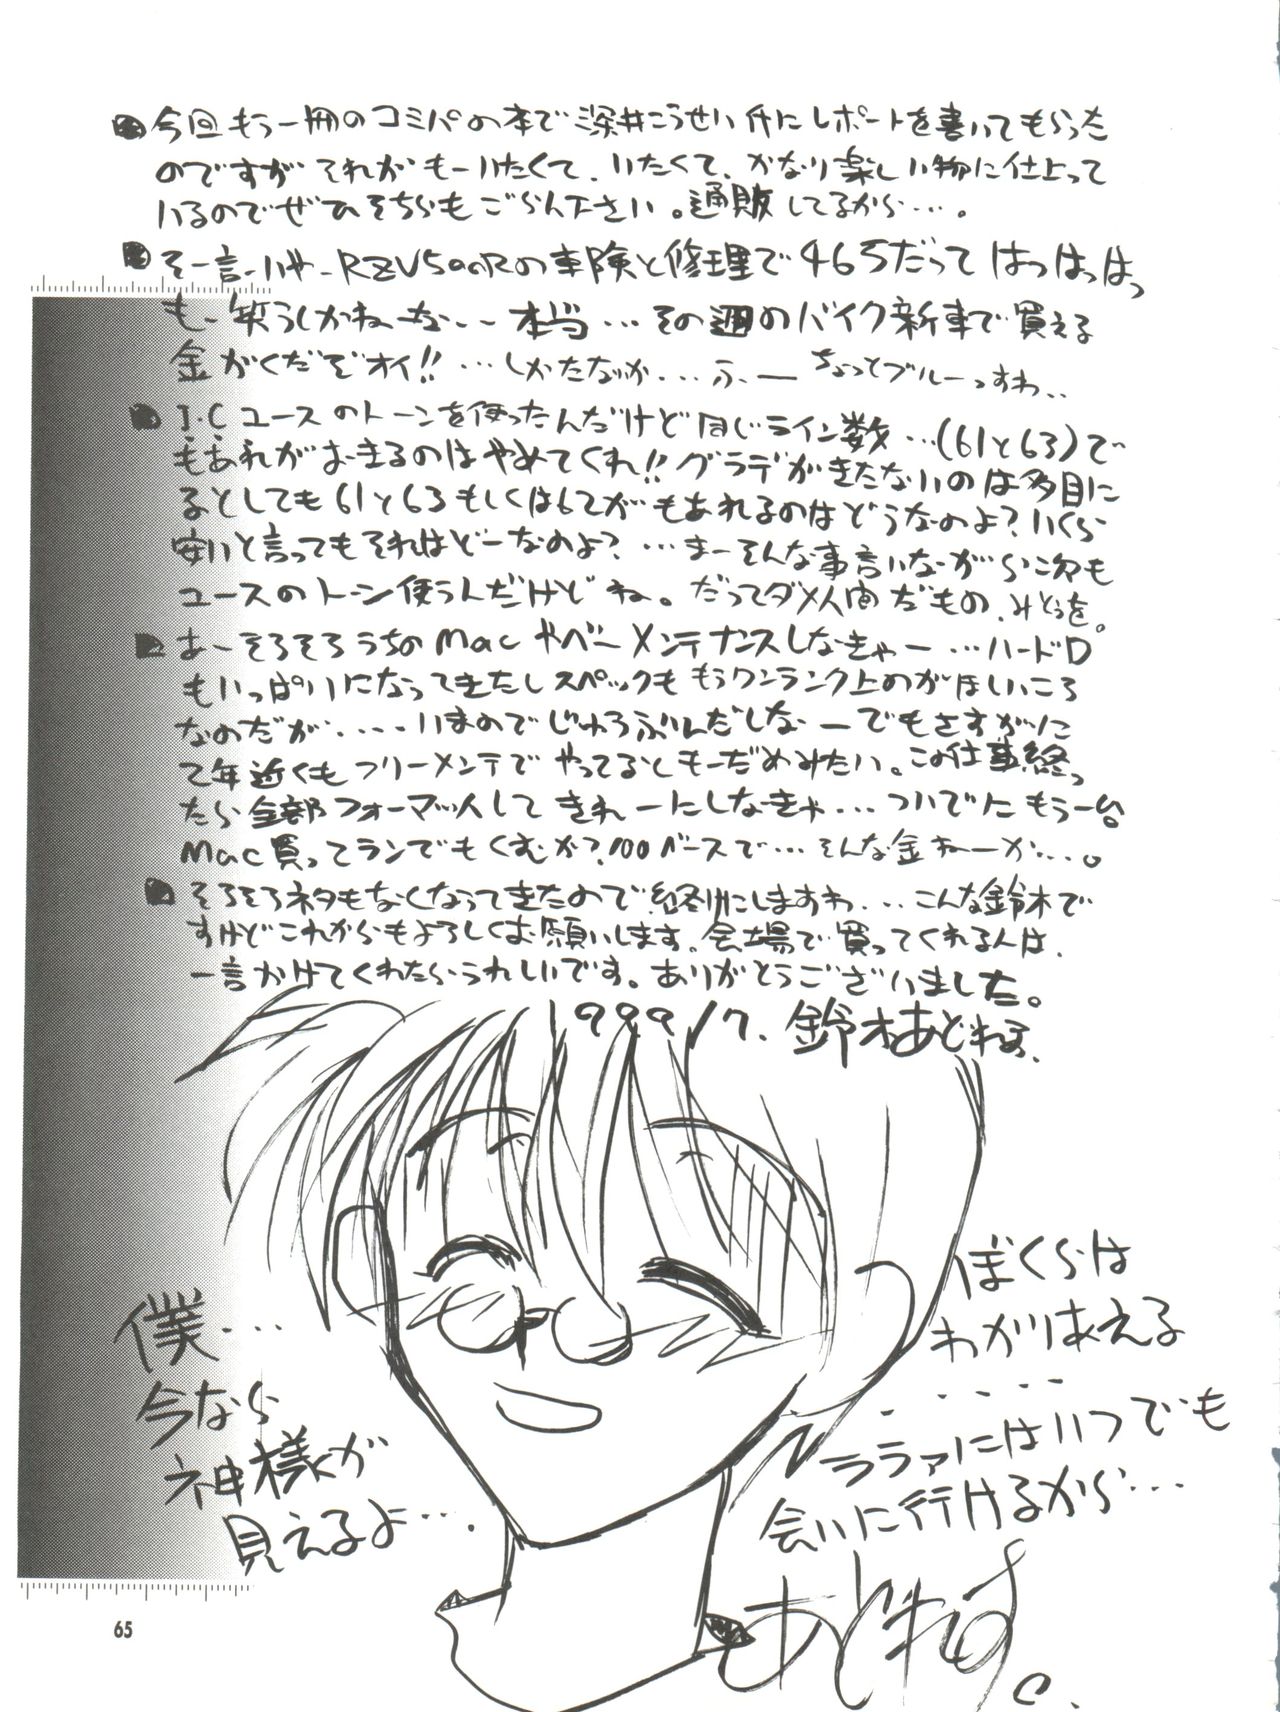 今回もう一冊のコミパの本で深井こうせい件にレポートを書いてもらった
のですが それがもーいたくて、いたくて、かなり楽しい物に仕上って
いるのでぜひそちらもごらん下さい。通販してるから…。
そー言ーいや-RZV500Rの車険と修理で465だって はっはっはっ
も-笑うしかねーな-- 本当…その週のバイク新車で買える
金がくだぞオイ!! …しかたなか…ふー ちょっとブルーっすわ..
I・Cユースのトーンを使ったんだけど同じライン数…(61と63)で
もあれがおきるのはやめてくれ!! グラデがきたないのは多目に
るとしても61と63もしくは62がもあれるのはどうなのよ? いくら
安いと言ってもそれはどーなのよ? …まーそんな事言いながら次も
ユースのトーン使うんだけどね。だってダメ人間だもの、みとぅを。
はーそろそろうちのMacやべーメンテナンスしなきゃー…ハードD
もいっぱいになってきたしスペックももうワンランク上のがほしいころ
なのだが・・・・いまのでじゅうぶんだしなーでもさすがに
2年近くもフリーメンテでやってるしもーだめみたい。この仕事終っ
たら全部フォーマットしてきれーにしなきゃ…ついでにもう一台
Mac買ってランでもくむか?100ベースで…そんな金ねーか…。
そろそろネタもなくなってきたので終りにしますわ…こんな鈴木で
すけどこれからもよろしくお願いします。会場で買ってくれる人は、
一言かけてくれたらうれしいです。ありがとうございました。
1999/7. 鈴木あどねす.
ぼくらは
わかりあえる
・・・・・・
ララァにはいつでも
会いに行けるから…
僕…
今なら
神様が
見えるよ…
あどねす。
65